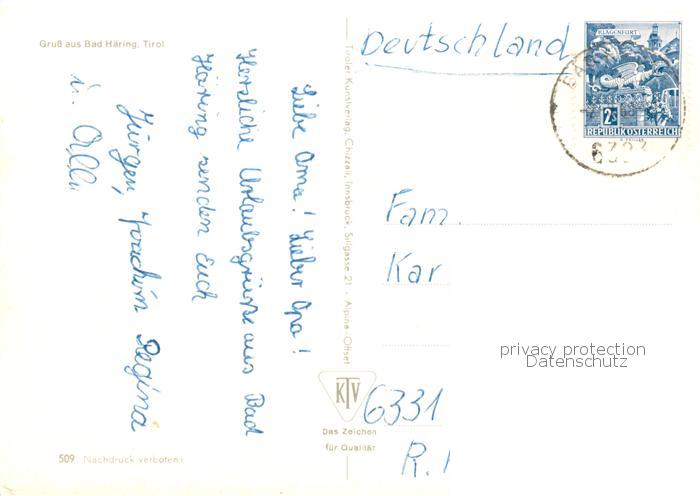 Gruß aus Bad Häring, Tirol
Liebe Oma! Lieber Opa!
Herzliche Urlaubsgrüße aus Bad
Häring senden Euch
Jürgen, Joachim Regina
u.
Tiroler Kunstverlag, Chizzali, Innsbruck, Sillgasse 21 - Alpina-Offset
KTV
Das Zeichen
für Qualität
509 Nachdruck verboten!
Deutschland
KLAGENFURT
2S
REPUBLIK ÖSTERREICH
6323
Fam.
Kar
privacy protection
Datenschutz
6331
R.